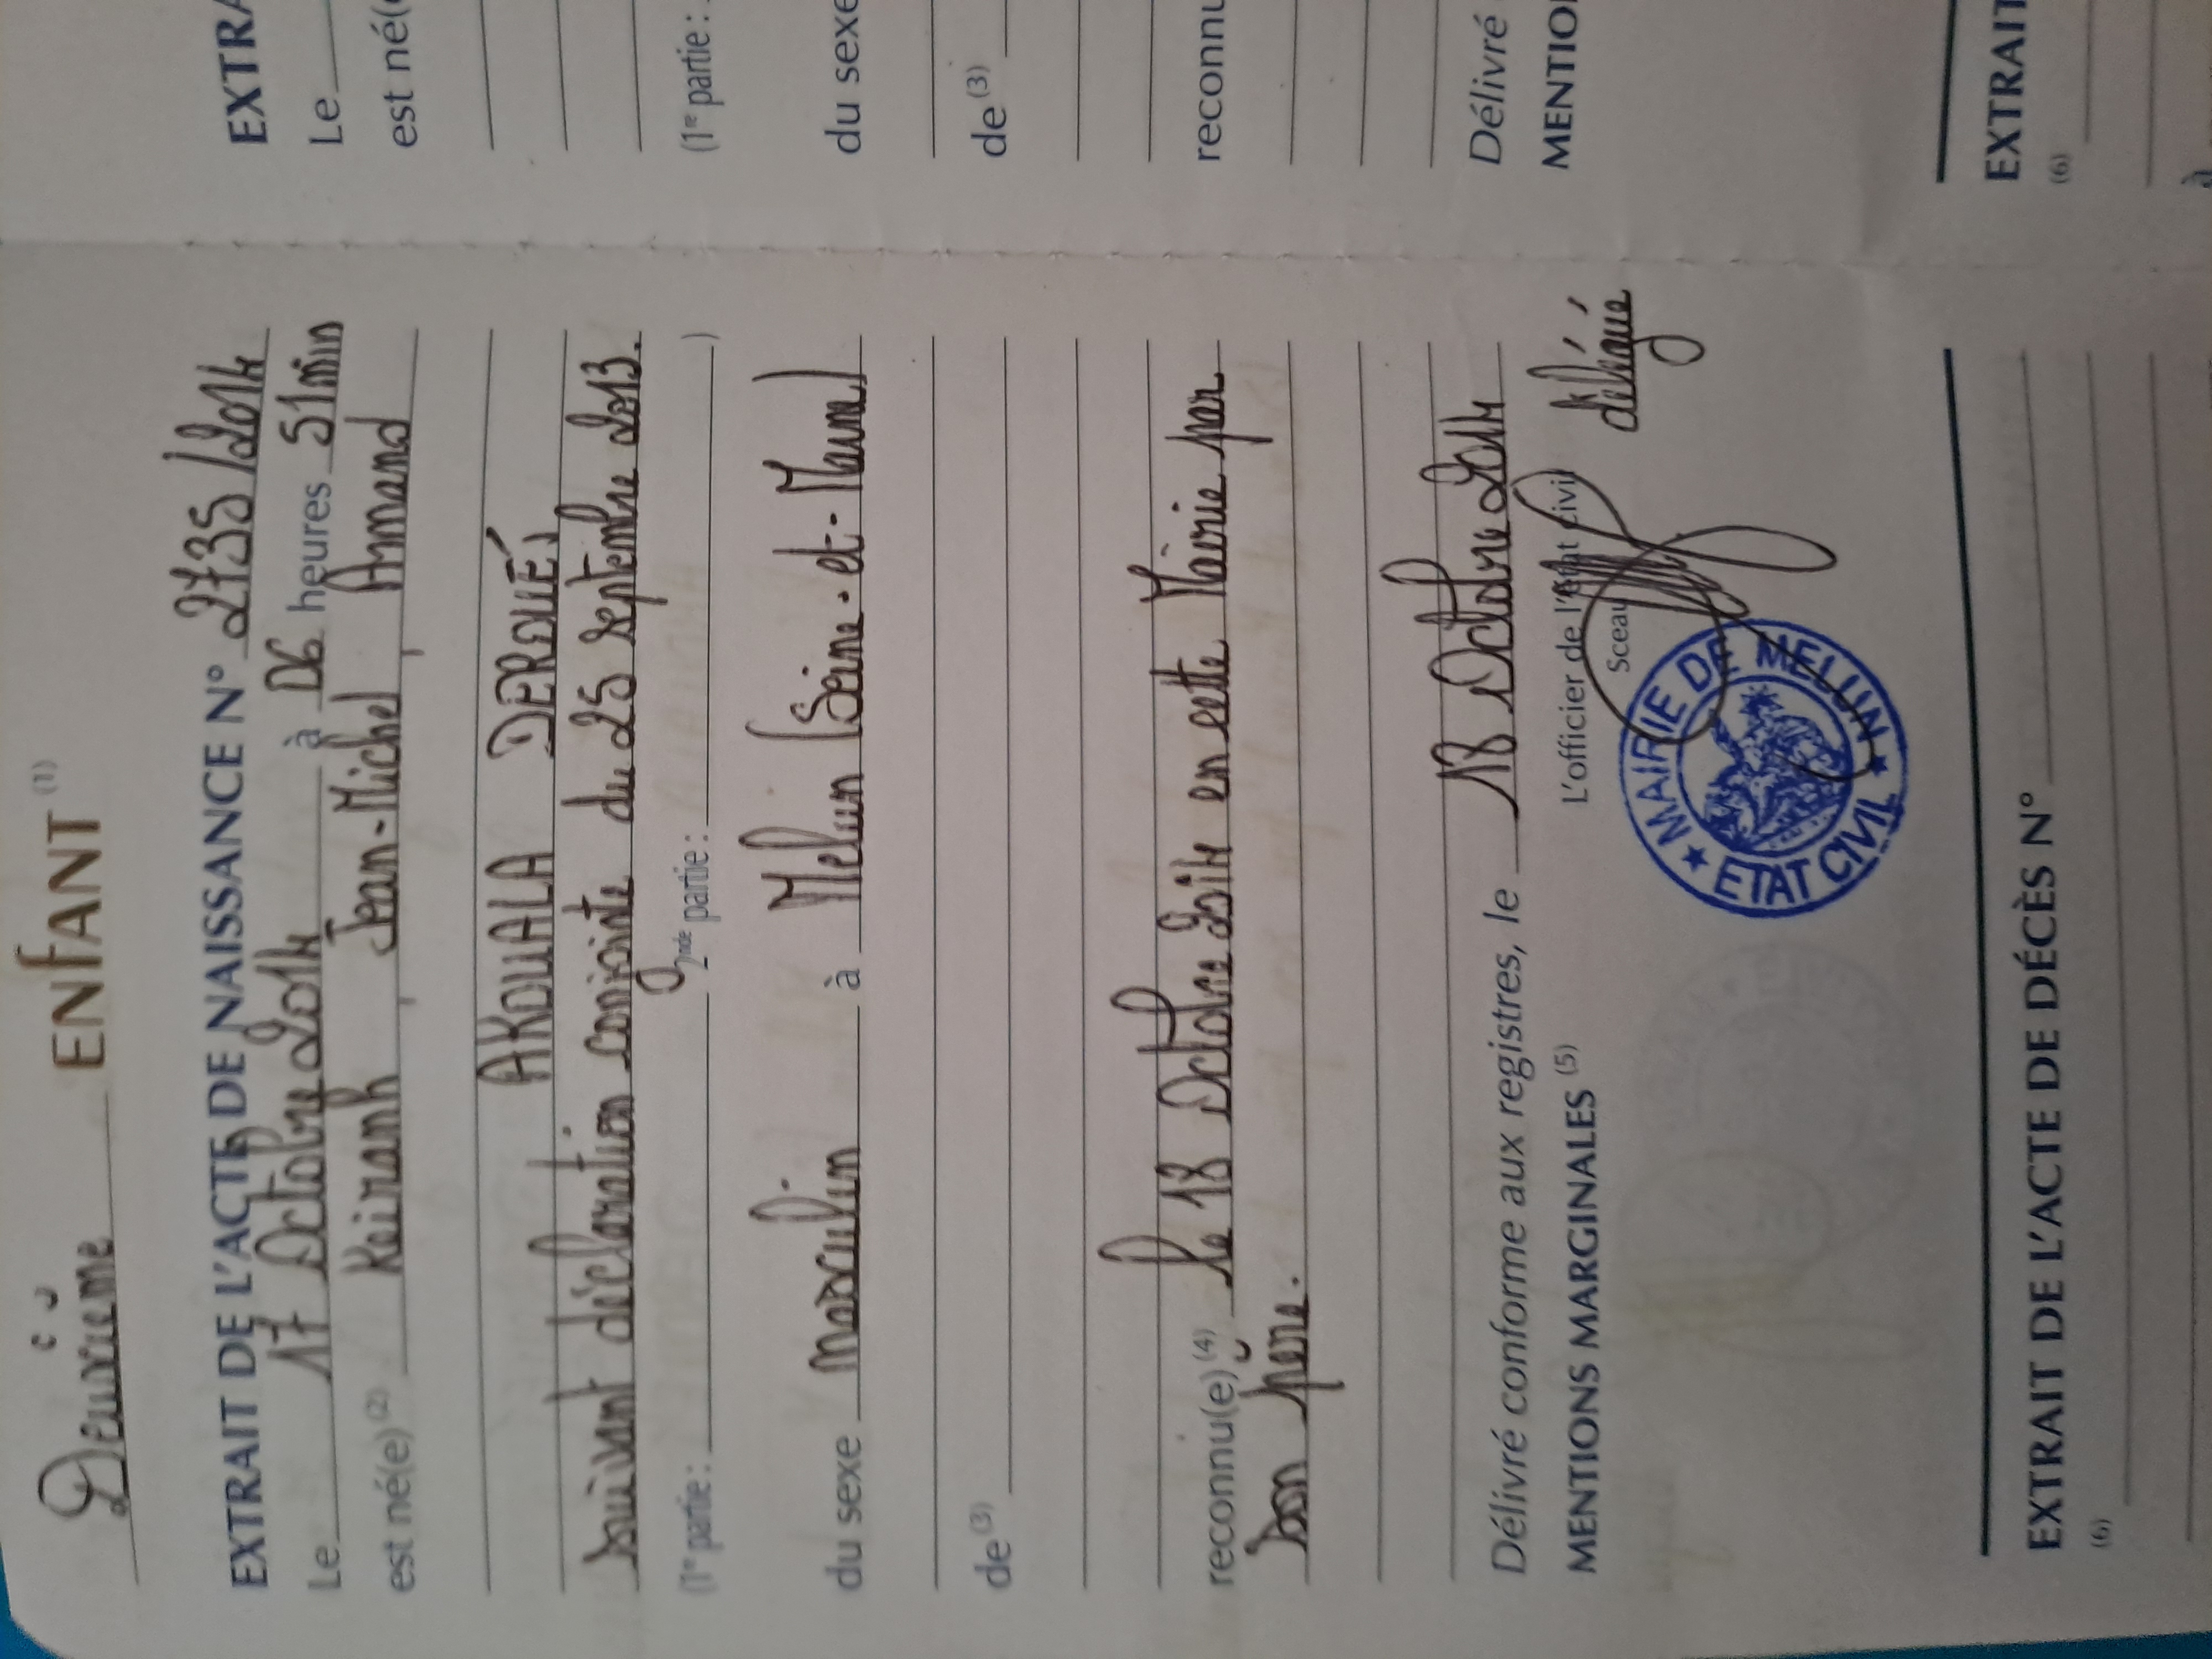 Deuxième ENFANT (1)
EXTRAIT DE L'ACTE DE NAISSANCE N° 2735/2014
Le 17 Octobre 2014 à 06 heures 51min
est né(e) (2) Keiranh, Jean-Michel, Armand
AKOUALA DEROUÉ,
suivant déclaration conjointe du 25 septembre 2013.
(1re partie : 2nde partie : )
du sexe masculin à Melun (Seine-et-Marne)
de (3)
reconnu(e) (4) le 18 Octobre 2014 en cette Mairie par
son père.
Délivré conforme aux registres, le 18 Octobre 2014
MENTIONS MARGINALES (5)
L'officier de l'état civil
délégué
Sceau
MAIRIE DE MELUN
ETAT CIVIL
EXTRAIT DE L'ACTE DE DÉCÈS N°
(6)
EXTRA
Le
est né(e
(1re partie :
du sexe
de (3)
reconnu
Délivré
MENTIO
EXTRAIT
(6)
à